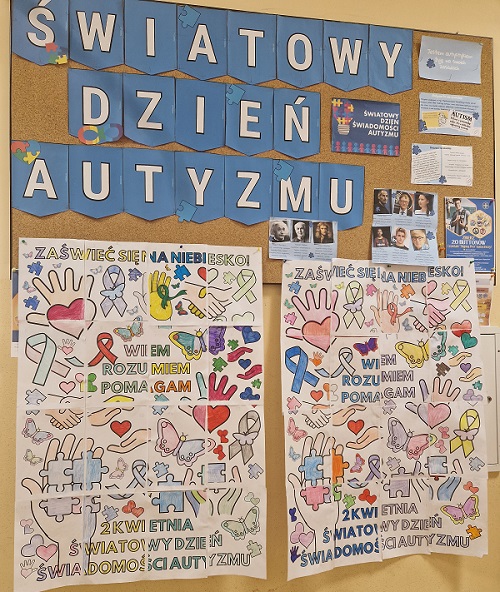 ŚWIATOWY
DZIEŃ
AUTYZMU
ŚWIATOWY
DZIEŃ
ŚWIADOMOŚCI
AUTYZMU
AUTYZM
ZAŚWIEĆ SIĘ NA NIEBIESKO!
WIEM
ROZUMIEM
POMAGAM
2 KWIETNIA
ŚWIATOWY DZIEŃ
ŚWIADOMOŚCI AUTYZMU
ZAŚWIEĆ SIĘ NA NIEBIESKO!
WIEM
ROZUMIEM
POMAGAM
2 KWIETNIA
ŚWIATOWY DZIEŃ
ŚWIADOMOŚCI AUTYZMU